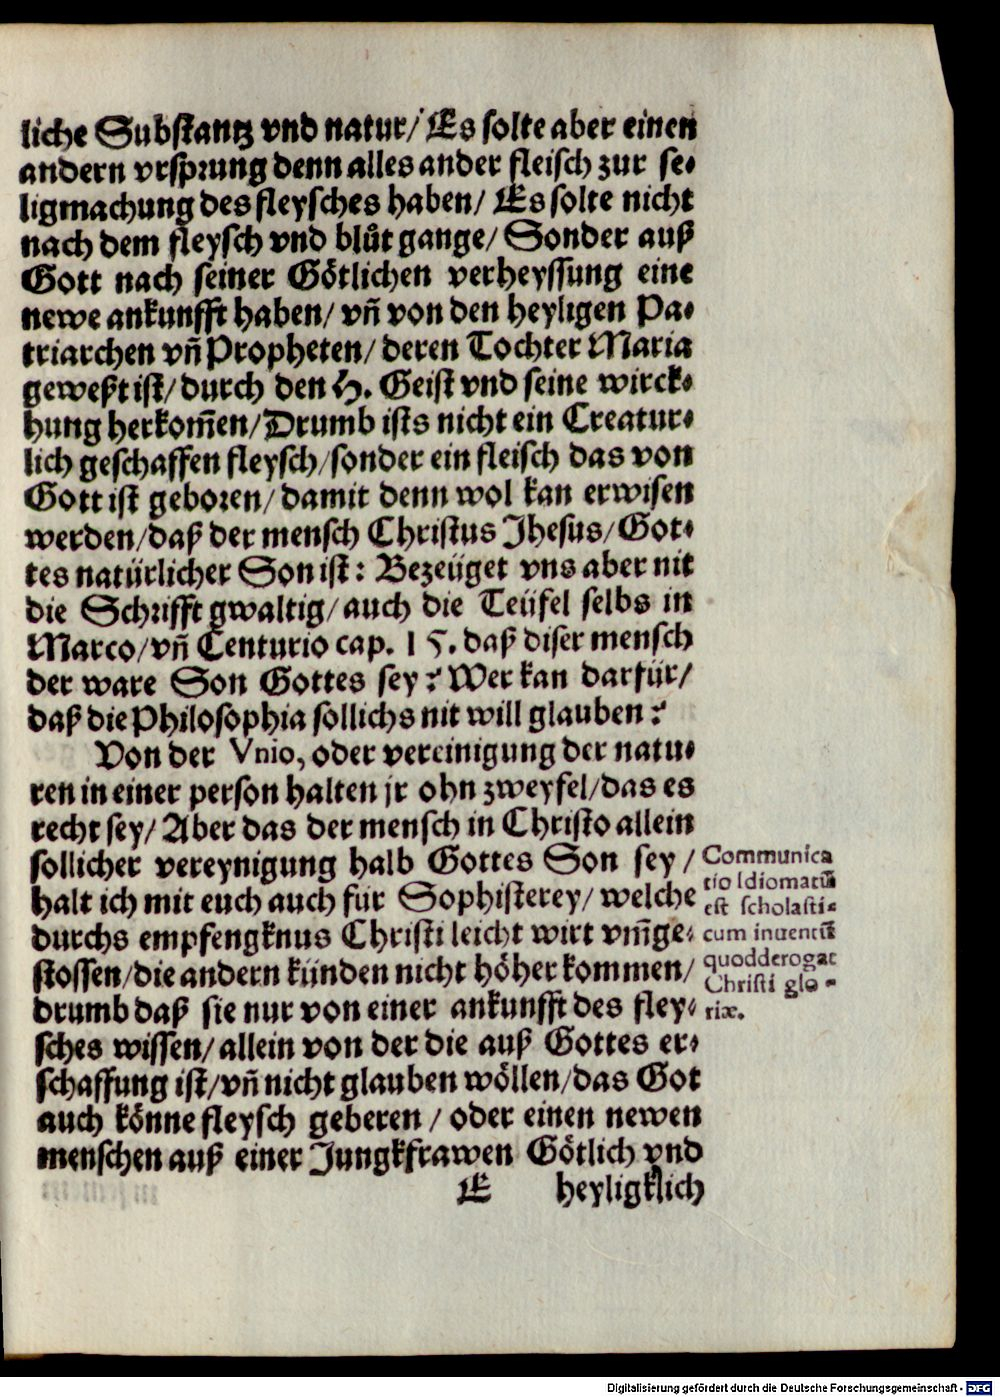 liche Substantz vnd natur/ Es solte aber einen
andern vrsprung denn alles ander fleisch zur se-
ligmachung des fleysches haben/ Es solte nicht
nach dem fleysch vnd blůt gange/ Sonder auß
Gott nach seiner Götlichen verheyssung eine
newe ankunfft haben/ vñ von den heyligen Pa-
triarchen vñ Propheten/ deren Tochter Maria
geweßt ist/ durch den H. Geist vnd seine wirck-
hung herkom̃en/ Drumb ists nicht ein Creatur-
lich geschaffen fleysch/ sonder ein fleisch das von
Gott ist geboren/ damit denn wol kan erwisen
werden/ daß der mensch Christus Jhesus/ Got-
tes natürlicher Son ist: Bezeüget vns aber nit
die Schrifft gwaltig/ auch die Teüfel selbs in
Marco/ vñ Centurio cap. 15. daß diser mensch
der ware Son Gottes sey? Wer kan darfür/
daß die Philosophia sollichs nit will glauben?
Von der Vnio, oder vereinigung der natu-
ren in einer person halten jr ohn zweyfel/ das es
recht sey/ Aber das der mensch in Christo allein
sollicher vereynigung halb Gottes Son sey/
halt ich mit euch auch für Sophisterey/ welche
durchs empfengknus Christi leicht wirt vm̃ge-
stossen/ die andern künden nicht höher kommen/
drumb daß sie nur von einer ankunfft des fley-
sches wissen/ allein von der die auß Gottes er-
schaffung ist/ vñ nicht glauben wöllen/ das Got
auch könne fleysch geberen/ oder einen newen
menschen auß einer Jungkfrawen Götlich vnd
E heyligklich
Communica
tio Idiomatũ
est scholasti-
cum inuentũ
quod derogat
Christi glo-
riæ.
Digitalisierung gefördert durch die Deutsche Forschungsgemeinschaft - DFG